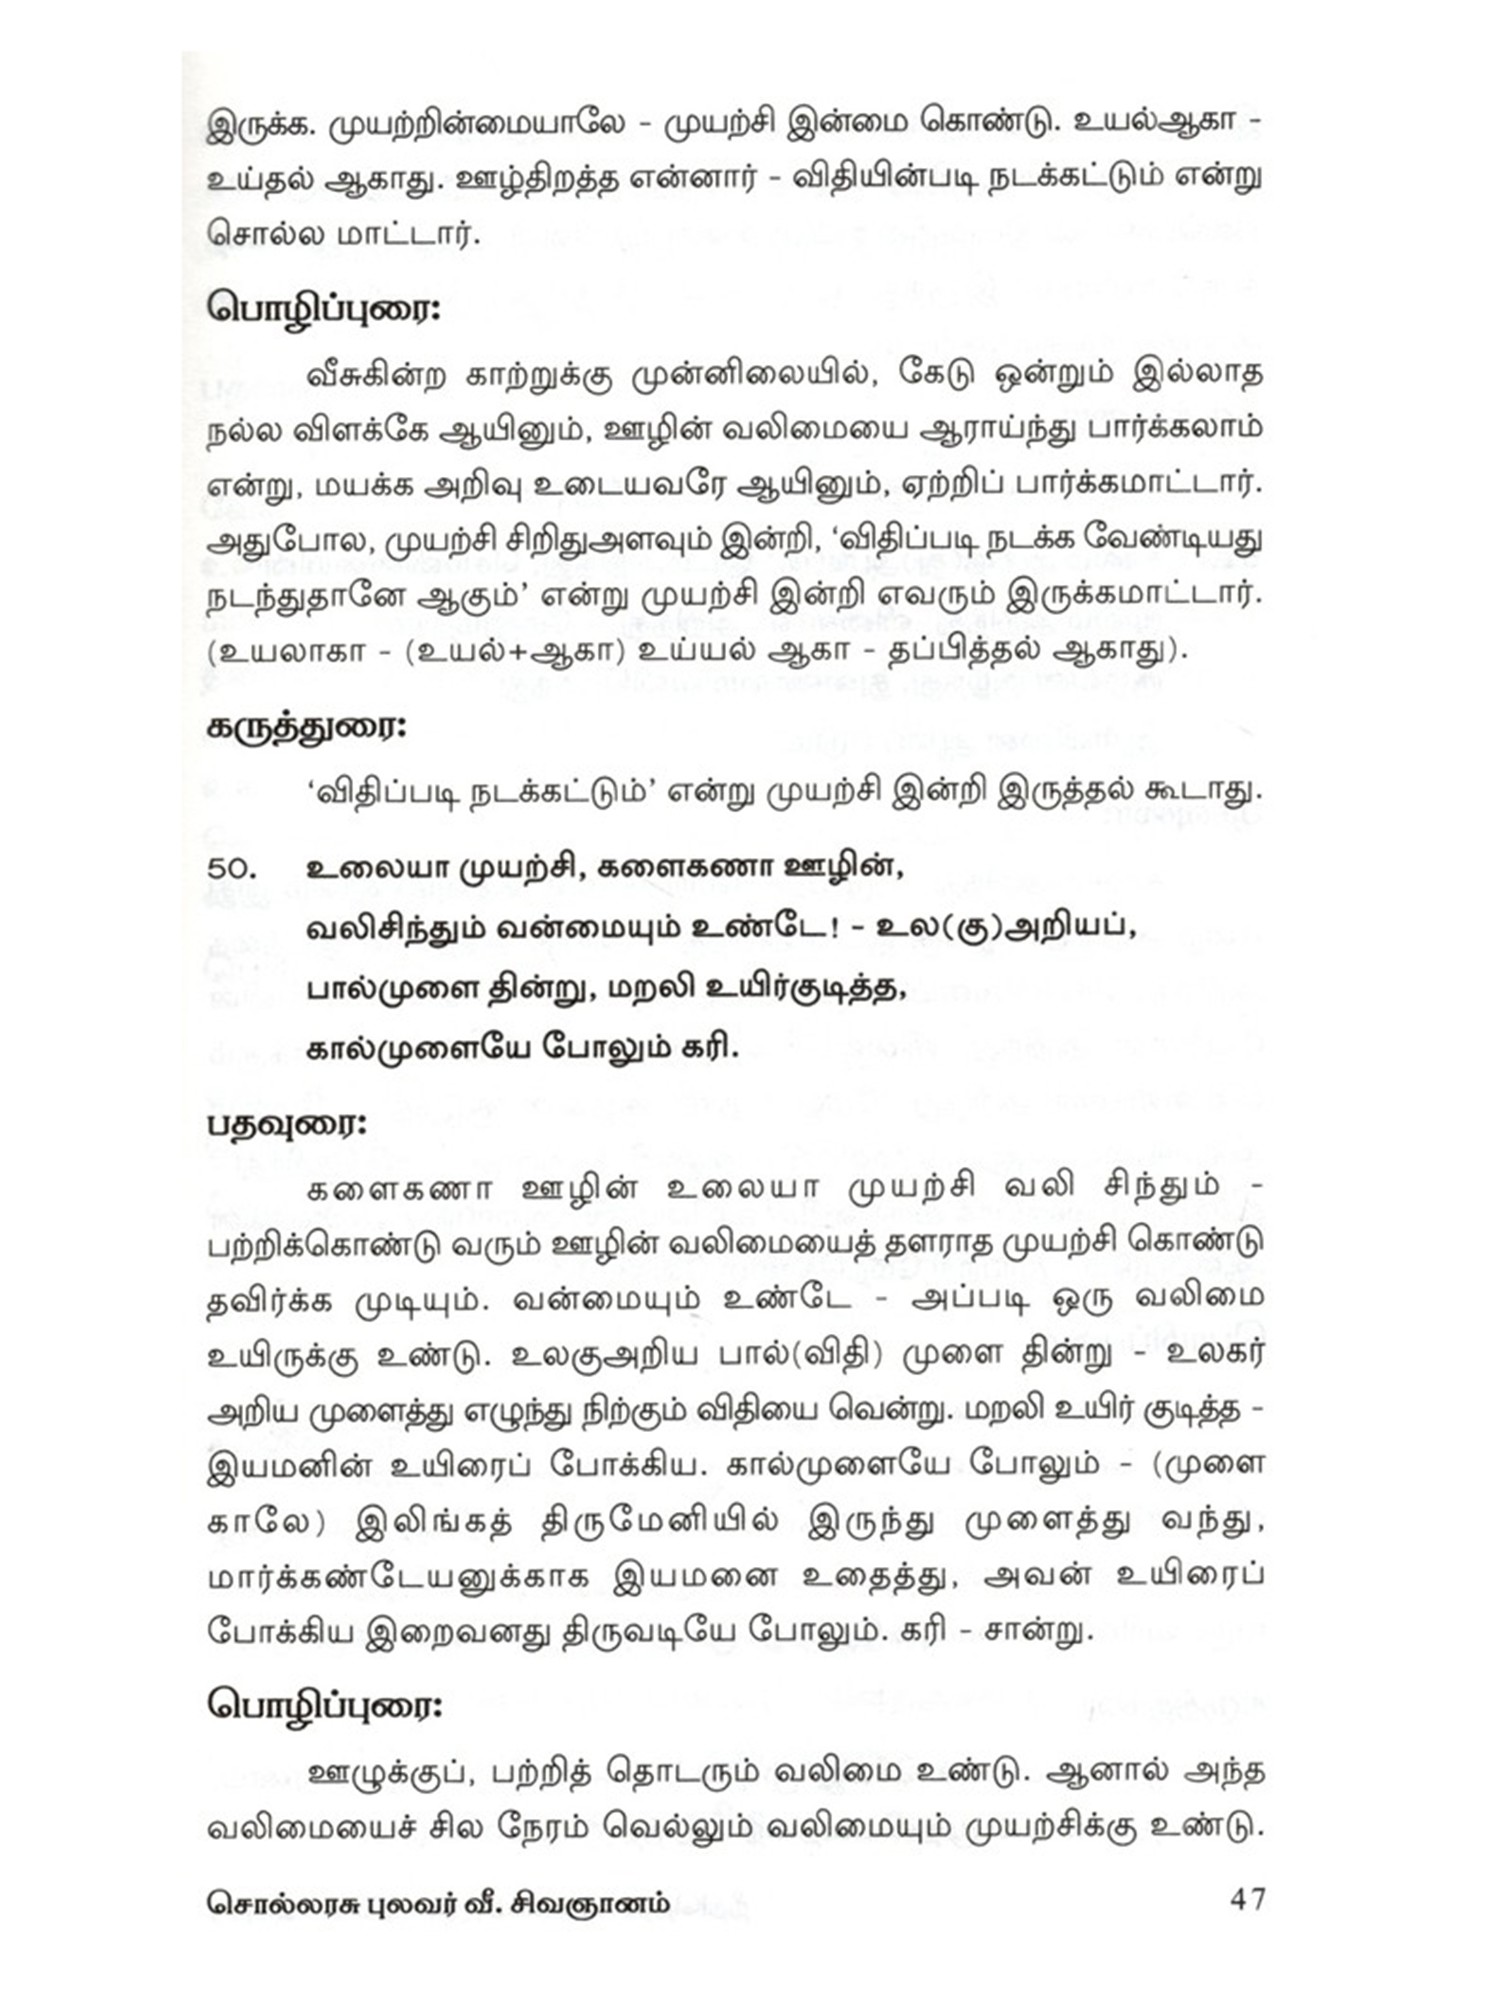 இருக்க. முயற்றின்மையாலே - முயற்சி இன்மை கொண்டு. உயல்ஆகா -
உய்தல் ஆகாது. ஊழ்திறத்த என்னார் - விதியின்படி நடக்கட்டும் என்று
சொல்ல மாட்டார்.
பொழிப்புரை:
வீசுகின்ற காற்றுக்கு முன்னிலையில், கேடு ஒன்றும் இல்லாத
நல்ல விளக்கே ஆயினும், ஊழின் வலிமையை ஆராய்ந்து பார்க்கலாம்
என்று, மயக்க அறிவு உடையவரே ஆயினும், ஏற்றிப் பார்க்கமாட்டார்.
அதுபோல, முயற்சி சிறிதுஅளவும் இன்றி, ‘விதிப்படி நடக்க வேண்டியது
நடந்துதானே ஆகும்’ என்று முயற்சி இன்றி எவரும் இருக்கமாட்டார்.
(உயலாகா - (உயல்+ஆகா) உய்யல் ஆகா - தப்பித்தல் ஆகாது).
கருத்துரை:
‘விதிப்படி நடக்கட்டும்’ என்று முயற்சி இன்றி இருத்தல் கூடாது.
50. உலையா முயற்சி, களைகணா ஊழின்,
வலிசிந்தும் வன்மையும் உண்டே! - உல(கு)அறியப்,
பால்முளை தின்று, மறலி உயிர்குடித்த,
கால்முளையே போலும் கரி.
பதவுரை:
களைகணா ஊழின் உலையா முயற்சி வலி சிந்தும் -
பற்றிக்கொண்டு வரும் ஊழின் வலிமையைத் தளராத முயற்சி கொண்டு
தவிர்க்க முடியும். வன்மையும் உண்டே - அப்படி ஒரு வலிமை
உயிருக்கு உண்டு. உலகுஅறிய பால்(விதி) முளை தின்று - உலகர்
அறிய முளைத்து எழுந்து நிற்கும் விதியை வென்று. மறலி உயிர் குடித்த -
இயமனின் உயிரைப் போக்கிய. கால்முளையே போலும் - (முளை
காலே) இலிங்கத் திருமேனியில் இருந்து முளைத்து வந்து,
மார்க்கண்டேயனுக்காக இயமனை உதைத்து, அவன் உயிரைப்
போக்கிய இறைவனது திருவடியே போலும். கரி - சான்று.
பொழிப்புரை:
ஊழுக்குப், பற்றித் தொடரும் வலிமை உண்டு. ஆனால் அந்த
வலிமையைச் சில நேரம் வெல்லும் வலிமையும் முயற்சிக்கு உண்டு.
சொல்லரசு புலவர் வீ. சிவஞானம் 47